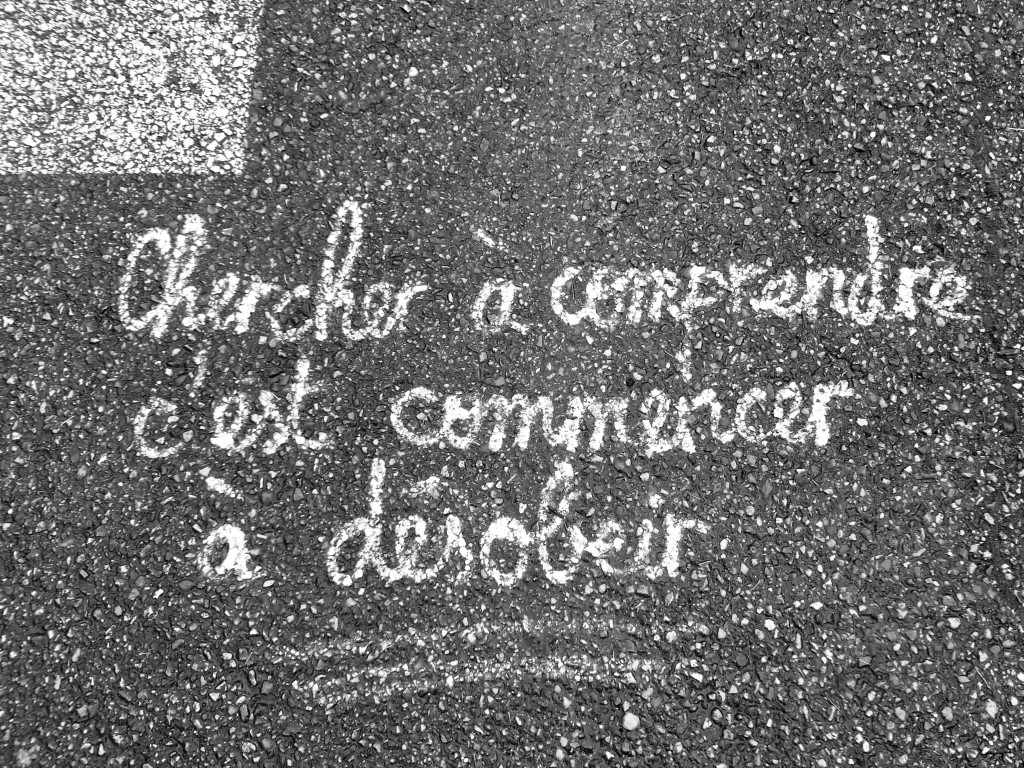 Chercher à comprendre
c'est commencer
à désobeir